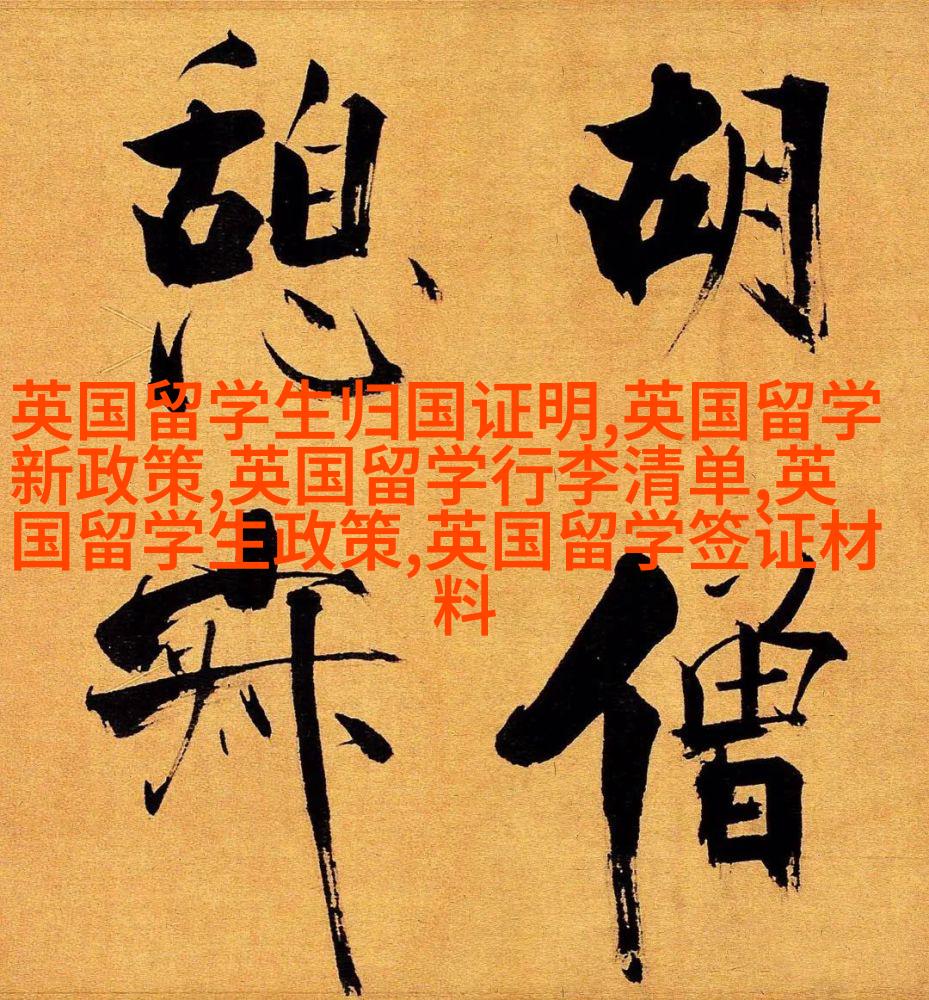 胡僧
憩寂
英国留学生归国证明,英国留学
新政策,英国留学行李清单,英
国留学生政策,英国留学签证材
料